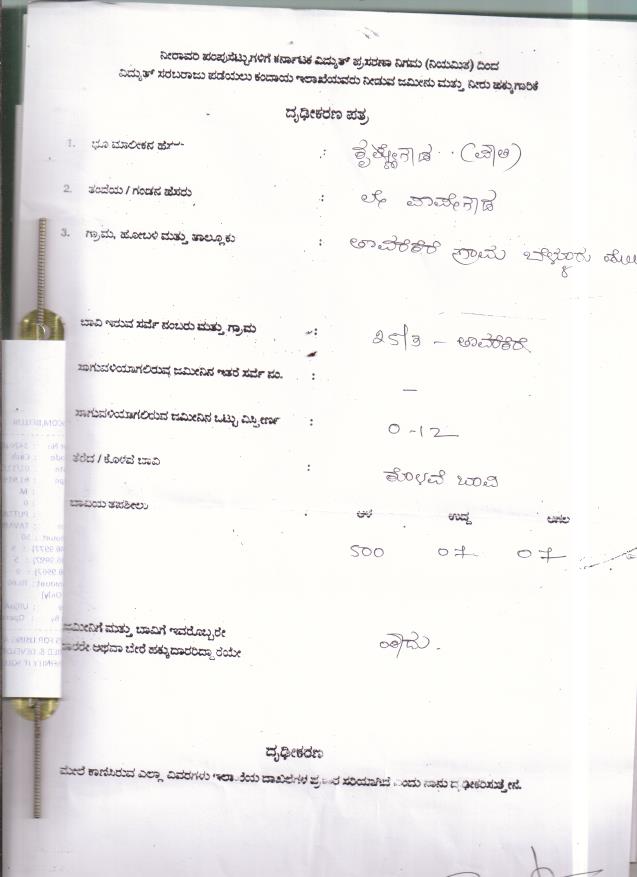 ನೀರಾವರಿ ಪಂಪುಸೆಟ್ಟುಗಳಿಗೆ ಕರ್ನಾಟಕ ವಿದ್ಯುತ್ ಪ್ರಸರಣಾ ನಿಗಮ (ನಿಯಮಿತ) ದಿಂದ
ವಿದ್ಯುತ್ ಸರಬರಾಜು ಪಡೆಯಲು ಕಂದಾಯ ಇಲಾಖೆಯವರು ನೀಡುವ ಜಮೀನು ಮತ್ತು ನೀರು ಹಕ್ಕುಗಾರಿಕೆ
ದೃಢೀಕರಣ ಪತ್ರ
1. ಭೂ ಮಾಲೀಕನ ಹೆಸರು : ಕೃಷ್ಣೇಗೌಡ (ಪೌತಿ)
2. ತಂದೆಯ / ಗಂಡನ ಹೆಸರು : ಲೇ ಪಾಪೇಗೌಡ
3. ಗ್ರಾಮ, ಹೋಬಳಿ ಮತ್ತು ತಾಲ್ಲೂಕು : ತಾವರೆಕೆರೆ ಗ್ರಾಮ ಬೆಳ್ಳೂರು
ಬಾವಿ ಇರುವ ಸರ್ವೆ ನಂಬರು ಮತ್ತು ಗ್ರಾಮ : 25/3 - ತಾವರೆಕೆರೆ
ಸಾಗುವಳಿಯಾಗಲಿರುವ ಜಮೀನಿನ ಇತರೆ ಸರ್ವೆ ನಂ. : -
ಸಾಗುವಳಿಯಾಗಲಿರುವ ಜಮೀನಿನ ಒಟ್ಟು ವಿಸ್ತೀರ್ಣ : 0-12
ತೆರೆದ / ಕೊಳವೆ ಬಾವಿ : ಕೊಳವೆ ಬಾವಿ
ಬಾವಿಯ ತಪಶೀಲು : ಆಳ ಉದ್ದ ಅಗಲ
500 07 07
ಜಮೀನಿಗೆ ಮತ್ತು ಬಾವಿಗೆ ಇವರೊಬ್ಬರೇ
ದಾರರೇ ಅಥವಾ ಬೇರೆ ಹಕ್ಕುದಾರರಿದ್ದಾರೆಯೇ ಹೌದು.
ದೃಢೀಕರಣ
ಮೇಲೆ ಕಾಣಿಸಿರುವ ಎಲ್ಲಾ ವಿವರಗಳು ಇಲಾಖೆಯ ದಾಖಲೆಗಳ ಪ್ರಕಾರ ಸರಿಯಾಗಿದೆ ಎಂದು ನಾನು ದೃಢೀಕರಿಸುತ್ತೇನೆ.